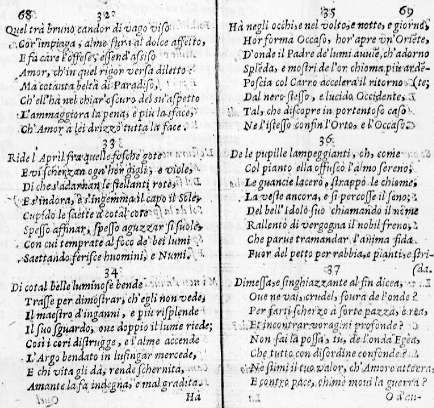 68
32
Quel trà bruno candor di vago viso
Cor' impiaga, alme fura al dolce affetto,
E fà care l'offese, essend' assiso
Amor, ch'in quel rigor versa diletto:
Ma cotanta beltà di Paradiso,
Ch'ell'hà nel chiar'oscuro del su' aspetto
L'ammaggiora la pena, e più la sface,
Ch'Amor à lei drizzò tutta la face.
33
Ride l'April frà quelle fosche gote
E vi scherzan ogn'hor gigli, e viole,
Di che s'adornan le stellanti rote,
E s'indora, e s'ingemma il capo il Sole,
Cupido le saette à cotal cote
Spesso affinar, spesso aguzzar si suole,
Con cui temprate al foco de' bei lumi
Saettando ferisce huomini, e Numi.
34
Di cotal belle luminose bende
Trasse per dimostrar, ch'egli non vede,
Il maestro d'inganni, e più risplende
Il suo sguardo, ove doppio il lume riede;
Così i cori distrugge, e l'alme accende
L'Argo bendato in lusingar mercede,
E chi vita gli dà, rende schernita,
Amante la fà indegna, e mal gradita.
Hà
35
69
Hà negli occhi, e nel volto, e notte, e giorno,
Hor forma Occaso, hor' apre vn' Oriẽte,
D'onde il Padre de' lumi auuiẽ, ch'adorno
Splẽda, e mostri de l'or chioma più ardẽ-
Poscia col Carro accelera il ritorno (te;
Dal nero stesso, e lucido Occidente,
Tal, che discopre in portentoso caso
Ne l'istesso confin l'Orto, e l'Occaso.
36
De le pupille lampeggianti, oh, come
Col pianto ella offuscò l'almo sereno;
Le guancie lacerò, strappò le chiome,
La veste ancora, e si percosse il seno;
Del bell' Idolo suo chiamando il nome
Rallentò di vergogna il nobil freno,
Che parue tramandar l'anima fida
Fuor del petto per rabbia, e pianti, e stri-
(da.
37
Dimessa, e singhiazzante al fin dicea,
Oue ne vai, crudel, soura de l'onde?
Per farti scherzo à sorte pazza, e rea,
Et incontrar voragini profonde?
Non sai là possa, tu, de l'onda Egea,
Che tutto con disordine confonde?
Ne stimi il tuo valor, ch'Amore atterra,
E contro pace, chi mè moui la guerra?
O d'au-